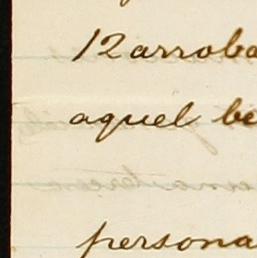 12 arroba
aquel be
persona